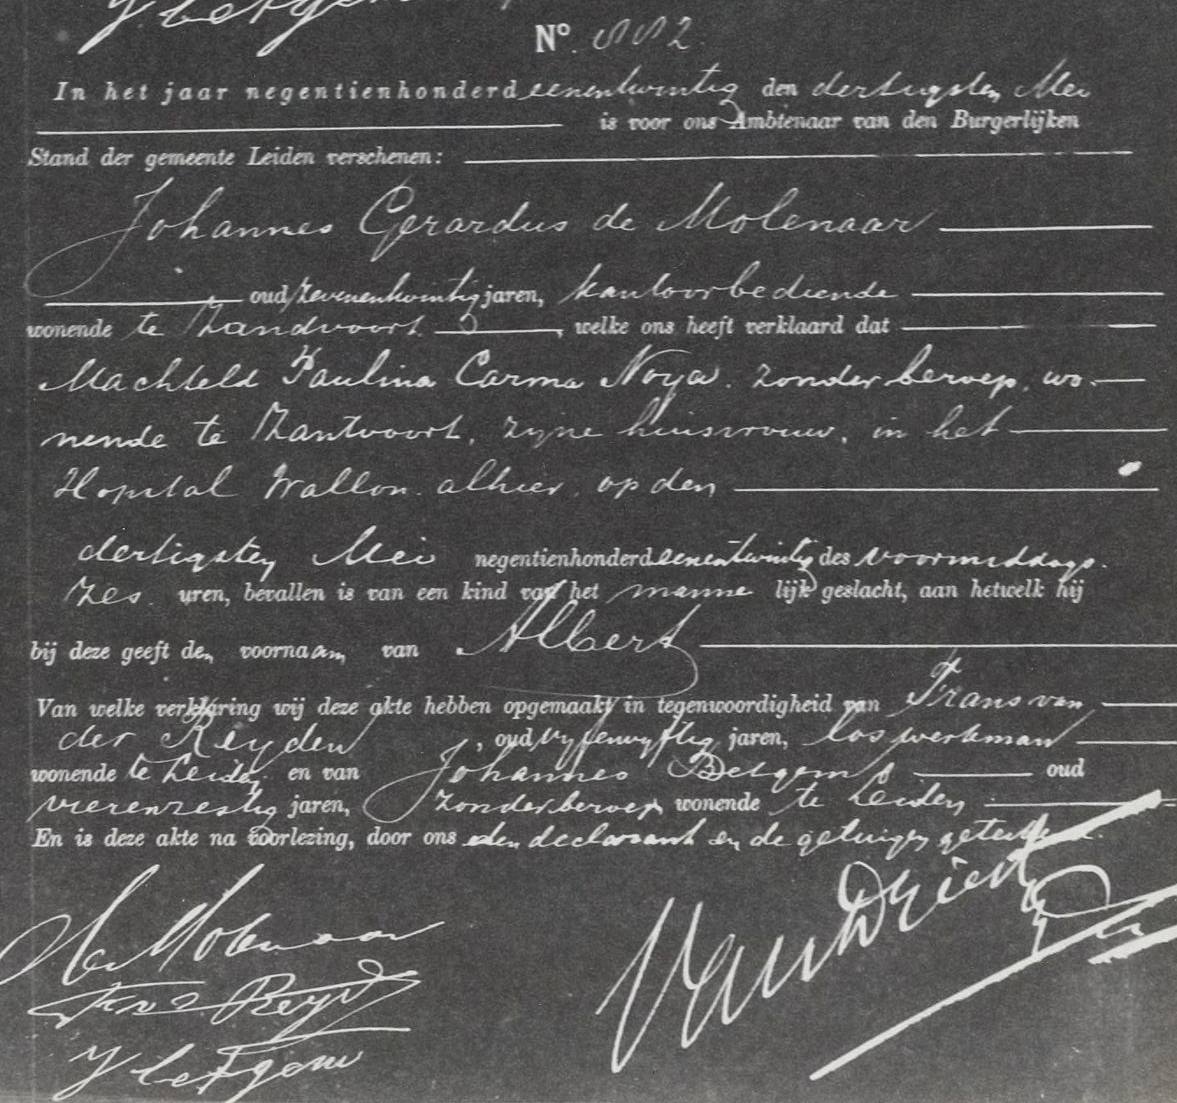 No. 882
In het jaar negentienhonderd eenentwintig den dertigsten Mei
is voor ons Ambtenaar van den Burgerlijken
Stand der gemeente Leiden verschenen:
Johannes Gerardus de Molenaar
oud zevenentwintig jaren, kantoorbediende
wonende te Zandvoort, welke ons heeft verklaard dat
Machteld Paulina Carma Noya. zonder beroep, wo-
nende te Zantvoort, zijne huisvrouw, in het
Hopital Wallon alhier, op den
dertigsten Mei negentienhonderd eenentwintig des voormiddags.
zes uren, bevallen is van een kind van het manne lijk geslacht, aan hetwelk hij
bij deze geeft den voornaam van Albert
Van welke verklaring wij deze akte hebben opgemaakt in tegenwoordigheid van Frans van
der Reyden, oud vyfenvyftig jaren, los werkman
wonende te Leiden en van Johannes Bergems oud
vierenzestig jaren, zonder beroep wonende te Leiden
En is deze akte na voorlezing, door ons den declarant en de getuigen geteekend.
de Molenaar